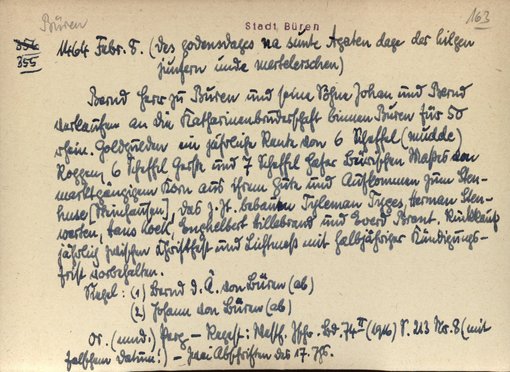 Büren
Stadt Büren
163
354
355
1464 Febr. 8. (des godensdages na sunte Agaten dage der hilgen
junfern unde mertelerschen)
Bernd Herr zu Büren und seine Söhne Johan und Bernd
verkaufen an die Katharinenbruderschaft binnen Büren für 50
rhein. Goldgulden ein jährliche Rente von 6 Scheffel (mudde)
Roggen, 6 Scheffel Gerste und 7 Scheffel Hafer Bürischen Maßes von
marktgängigem Korn aus ihrem Gute und Aufkommen zum Sten-
huse [Steinhausen], das z. Zt. bebauen Tyleman Tyges, Herman Sten-
werten, Hans Kock, Engkelbert Hillebrand und Everd Brant. Rückkauf
jährlich zwischen Christfest und Lichtmeß mit halbjähriger Kündigungs-
frist vorbehalten.
Siegel: (1) Bernd d. Ä. von Büren (ab)
(2) Johann von Büren (ab)
Or. (mnd.) Perg. - Regest: Westf. Ztschr. Bd 74 II (1916) S. 213 Nr. 8 (mit
falschem Datum!) - zwei Abschriften des 17. Jhs.